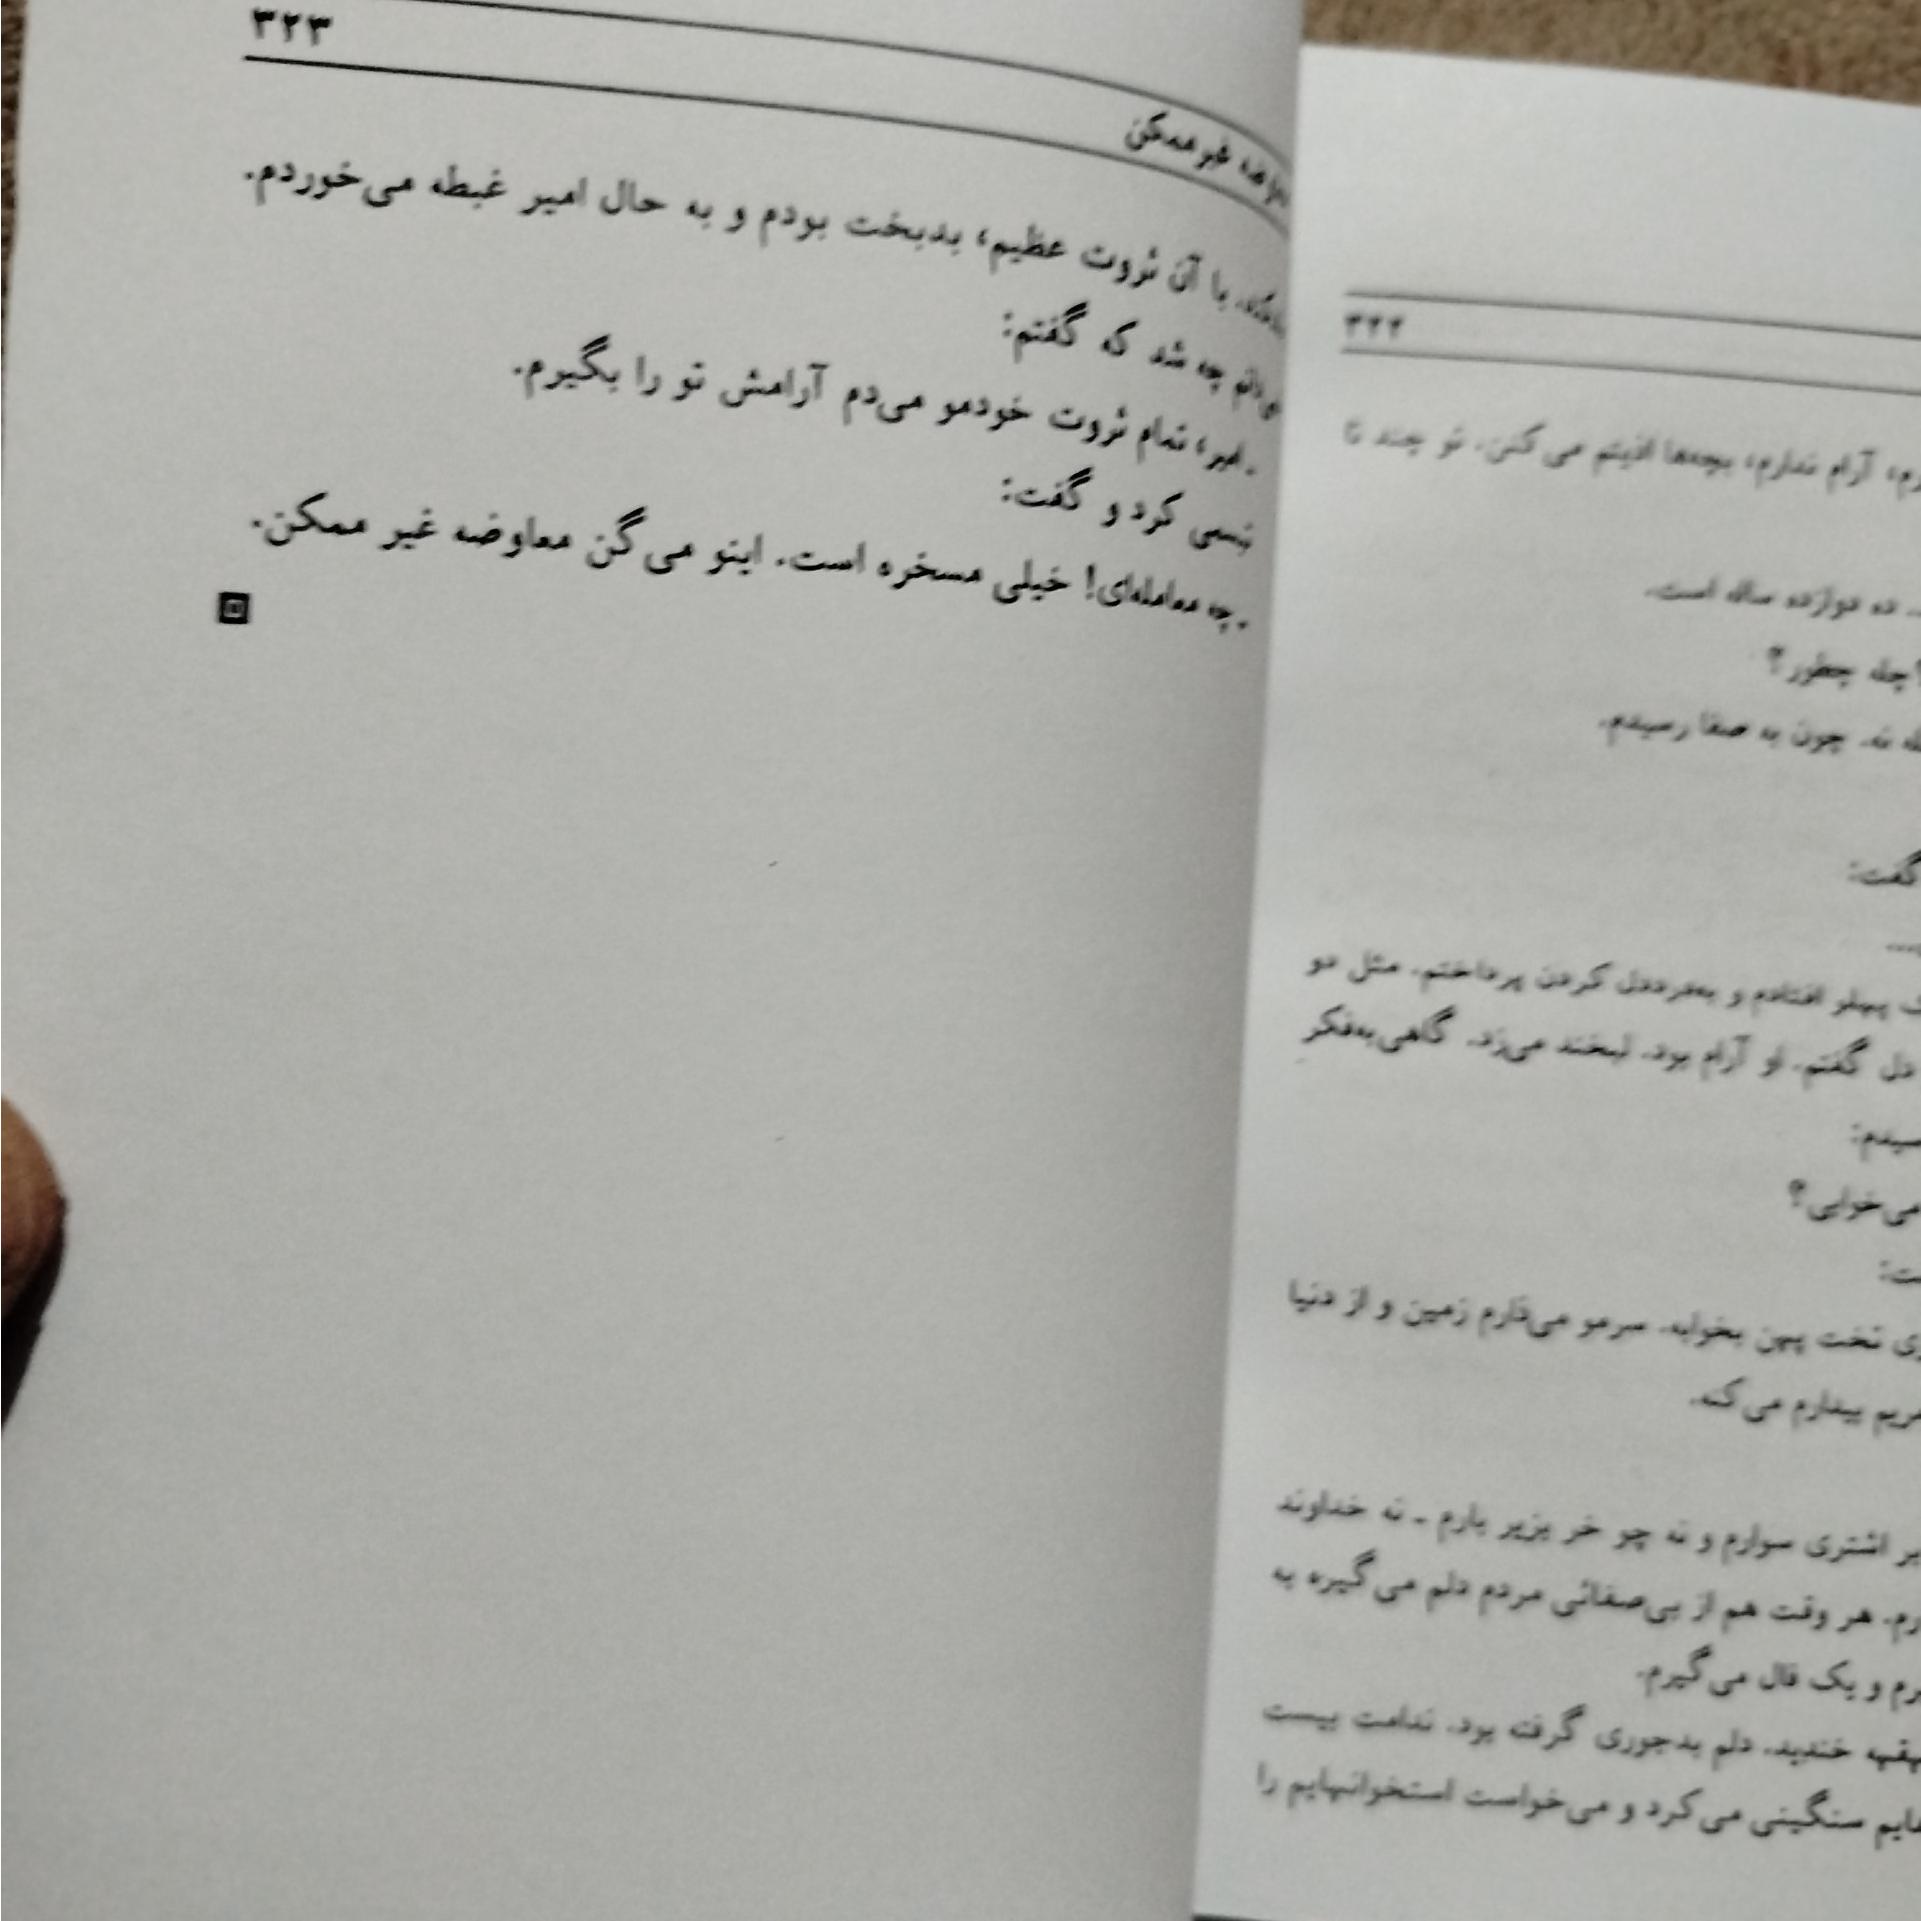 ۳۲۳
معاوضه غیرممکن
بشکند. با آن ثروت عظیم، بدبخت بودم و به حال امیر غبطه می‌خوردم.
چه شد که گفتم:
ـ امیر، تمام ثروت خودمو می‌دم آرامش تو را بگیرم.
تبسمی کرد و گفت:
ـ چه معامله‌ای! خیلی مسخره است. اینو می‌گن معاوضه غیر ممکن.
آرام ندارم، بچه‌ها اذیتم می‌کنن. تو چند تا
ده دوازده ساله است.
چله چطور؟
نه. چون به صفا رسیدم.
گفت:
پهلو افتادم و به‌درددل کردن پرداختم. مثل دو
دل گفتم. او آرام بود. لبخند می‌زد. گاهی‌به‌فکر
می‌خوابی؟
تخت پهن بخوابه. سرمو می‌ذارم زمین و از دنیا
بیدارم می‌کنه.
بر اشتری سوارم و نه چو خر بزیر بارم ـ نه خداوند
هر وقت هم از بی‌صفائی مردم دلم می‌گیره به
و یک فال می‌گیرم.
خندید. دلم بدجوری گرفته بود. ندامت بیست
سنگینی می‌کرد و می‌خواست استخوانهایم را